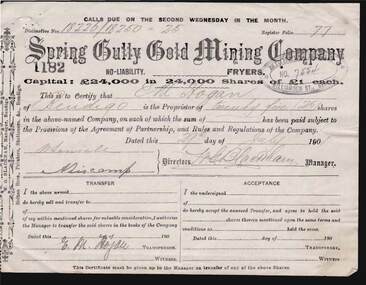 CALLS DUE ON THE SECOND WEDNESDAY IN THE MONTH.
Distinctive Nos. 18226/18250 - 25 Register Folio 77
Spring Gully Gold Mining Company
1182 NO-LIABILITY. FRYERS.
Capital: £24,000 in 24,000 Shares of £1 each.
This is to Certify that E M Hogan
of Bendigo is the Proprietor of Twenty five Shares
in the above-named Company, on each of which the sum of has been paid subject to
the Provisions of the Agreement of Partnership, and Rules and Regulations of the Company.
Dated this day of 190
Directors Manager.
TRANSFER ACCEPTANCE
I the above named I the undersigned
do hereby sell and transfer to of
of do hereby accept the annexed Transfer, and agree to hold the said
of my within mentioned shares for valuable consideration, I authorise shares therein mentioned upon the same terms and
the Manager to transfer the said shares in the books of the Company conditions to the same.
Dated this day of 190 Dated this day of 190
E. M. Hogan TRANSFEROR. TRANSFEREE.
WITNESS. WITNESS.
This Certificate must be given up to the Manager on transfer of any of the above Shares